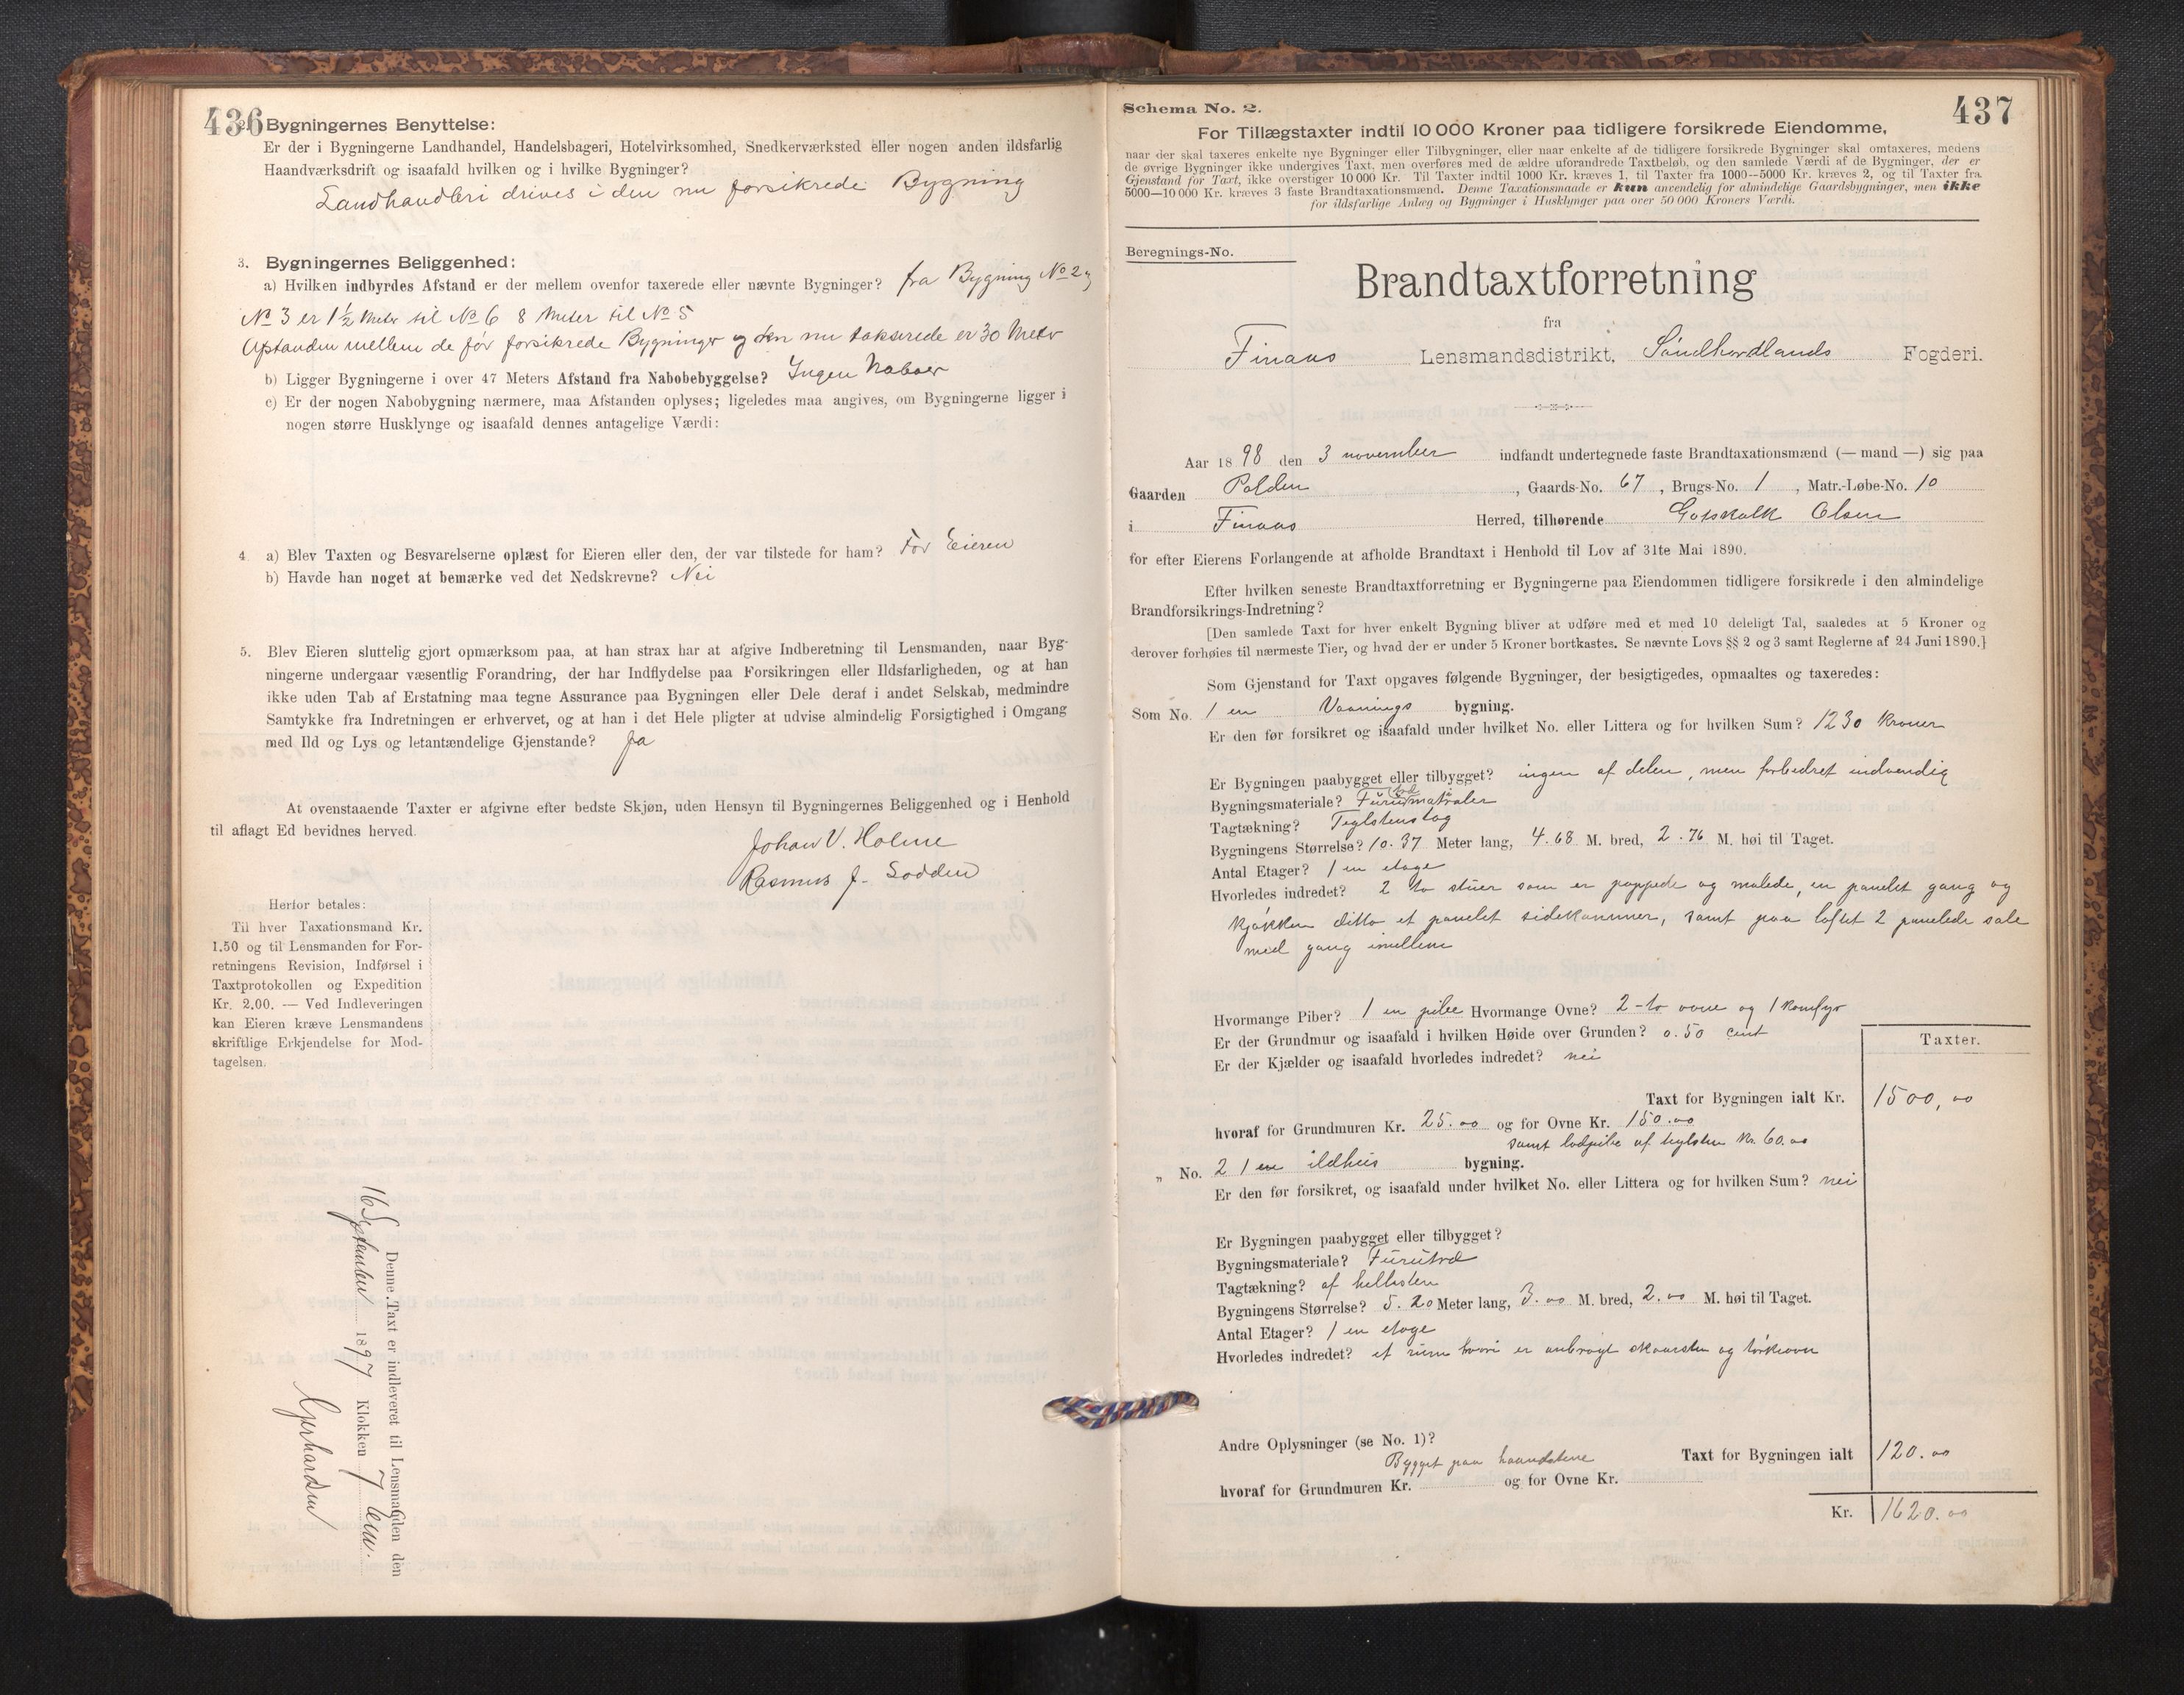 436
2. Bygningernes Benyttelse:
Er der i Bygningerne Landhandel, Handelsbageri, Hotelvirksomhed, Snedkerværksted eller nogen anden ildsfarlig
Haandværksdrift og isaafald hvilken og i hvilke Bygninger?
Landhandleri drives i den nu forsikrede Bygning
3. Bygningernes Beliggenhed:
a) Hvilken indbyrdes Afstand er der mellem ovenfor taxerede eller nævnte Bygninger? fra Bygning No 2 og
No 3 er 1½ Meter til No 6 8 Meter til No 5
Afstanden mellem de før forsikrede Bygninger og den nu takserede er 30 Meter
b) Ligger Bygningerne i over 47 Meters Afstand fra Nabobebyggelse? Ingen Naboer
c) Er der nogen Nabobygning nærmere, maa Afstanden oplyses; ligeledes maa angives, om Bygningerne ligger i
nogen større Husklynge og isaafald dennes antagelige Værdi:
4. a) Blev Taxten og Besvarelserne oplæst for Eieren eller den, der var tilstede for ham? For Eieren
b) Havde han noget at bemærke ved det Nedskrevne? Nei
5. Blev Eieren sluttelig gjort opmærksom paa, at han strax har at afgive Indberetning til Lensmanden, naar Byg-
ningerne undergaar væsentlig Forandring, der har Indflydelse paa Forsikringen eller Ildsfarligheden, og at han
ikke uden Tab af Erstatning maa tegne Assurance paa Bygningen eller Dele deraf i andet Selskab, medmindre
Samtykke fra Indretningen er erhvervet, og at han i det Hele pligter at udvise almindelig Forsigtighed i Omgang
med Ild og Lys og letantændelige Gjenstande? Ja
At ovenstaaende Taxter er afgivne efter bedste Skjøn, uden Hensyn til Bygningernes Beliggenhed og i Henhold
til aflagt Ed bevidnes herved.
Johan V. Holme
Rasmus J. Lodden
Herfor betales:
Til hver Taxationsmand Kr.
1.50 og til Lensmanden for For-
retningens Revision, Indførsel i
Taxtprotokollen og Expedition
Kr. 2.00. — Ved Indleveringen
kan Eieren kræve Lensmandens
skriftlige Erkjendelse for Mod-
tagelsen.
Denne Taxt er indleveret til Lensmanden den
16 September 1897 Klokken 7 em.
Gjerhardsen
437
Schema No. 2.
For Tillægstaxter indtil 10 000 Kroner paa tidligere forsikrede Eiendomme,
naar der skal taxeres enkelte nye Bygninger eller Tilbygninger, eller naar enkelte af de tidligere forsikrede Bygninger skal omtaxeres, medens
de øvrige Bygninger ikke undergives Taxt, men overføres med de ældre uforandrede Taxtbeløb, og den samlede Værdi af de Bygninger, der er
Gjenstand for Taxt, ikke overstiger 10 000 Kr. Til Taxter indtil 1000 Kr. kræves 1, til Taxter fra 1000—5000 Kr. kræves 2, og til Taxter fra
5000—10 000 Kr. kræves 3 faste Brandtaxationsmænd. Denne Taxationsmaade er kun anvendelig for almindelige Gaardsbygninger, men ikke
for ildsfarlige Anlæg og Bygninger i Husklynger paa over 50 000 Kroners Værdi.
Beregnings-No.
Brandtaxtforretning
fra
Finaas Lensmandsdistrikt, Søndhordlands Fogderi.
Aar 1898 den 3 november indfandt undertegnede faste Brandtaxationsmænd (— mand —) sig paa
Gaarden Polden, Gaards-No. 67, Brugs-No. 1, Matr.-Løbe-No. 10
i Finaas Herred, tilhørende Gotskalk Olsen
for efter Eierens Forlangende at afholde Brandtaxt i Henhold til Lov af 31te Mai 1890.
Efter hvilken seneste Brandtaxtforretning er Bygningerne paa Eiendommen tidligere forsikrede i den almindelige
Brandforsikrings-Indretning?
[Den samlede Taxt for hver enkelt Bygning bliver at udføre med et med 10 deleligt Tal, saaledes at 5 Kroner og
derover forhøies til nærmeste Tier, og hvad der er under 5 Kroner bortkastes. Se nævnte Lovs §§ 2 og 3 samt Reglerne af 24 Juni 1890.]
Som Gjenstand for Taxt opgaves følgende Bygninger, der besigtigedes, opmaaltes og taxeredes:
Som No. 1 en Vaanings bygning.
Er den før forsikret og isaafald under hvilket No. eller Littera og for hvilken Sum? 1230 Kroner
Er Bygningen paabygget eller tilbygget? ingen af delen, men forbedret indvendig
Bygningsmateriale? Furutrd matraler
Tagtækning? Teglstenstag
Bygningens Størrelse? 10.37 Meter lang, 4.68 M. bred, 2.76 M. høi til Taget.
Antal Etager? 1 en etage
Hvorledes indredet? 2 to stuer som er pappede og malede, en panelet gang og
kjøkken ditto et panelet sidekammer, samt paa loftet 2 panelede sale
med gang imellem
Hvormange Piber? 1 en pibe Hvormange Ovne? 2 - to ovne og 1 komfyr
Er der Grundmur og isaafald i hvilken Høide over Grunden? 0.50 cent
Er der Kjælder og isaafald hvorledes indredet? nei
Taxter.
Taxt for Bygningen ialt Kr. 1500,00
hvoraf for Grundmuren Kr. 25.00 og for Ovne Kr. 150.00
samt lodpibe af teglsten Kr. 60.00
„ No. 2 1 en ildhus bygning.
Er den før forsikret, og isaafald under hvilket No. eller Littera og for hvilken Sum? nei
Er Bygningen paabygget eller tilbygget?
Bygningsmateriale? Furutrd
Tagtækning? af hellesten
Bygningens Størrelse? 5.20 Meter lang, 3.00 M. bred, 2.00 M. høi til Taget.
Antal Etager? 1 en etage
Hvorledes indredet? et rum hvori er anbragt skorsten og tørkeovn
Andre Oplysninger (se No. 1)?
Bygget paa haandstene
Taxt for Bygningen ialt 120.00
hvoraf for Grundmuren Kr. og for Ovne Kr.
Kr. 1620.00